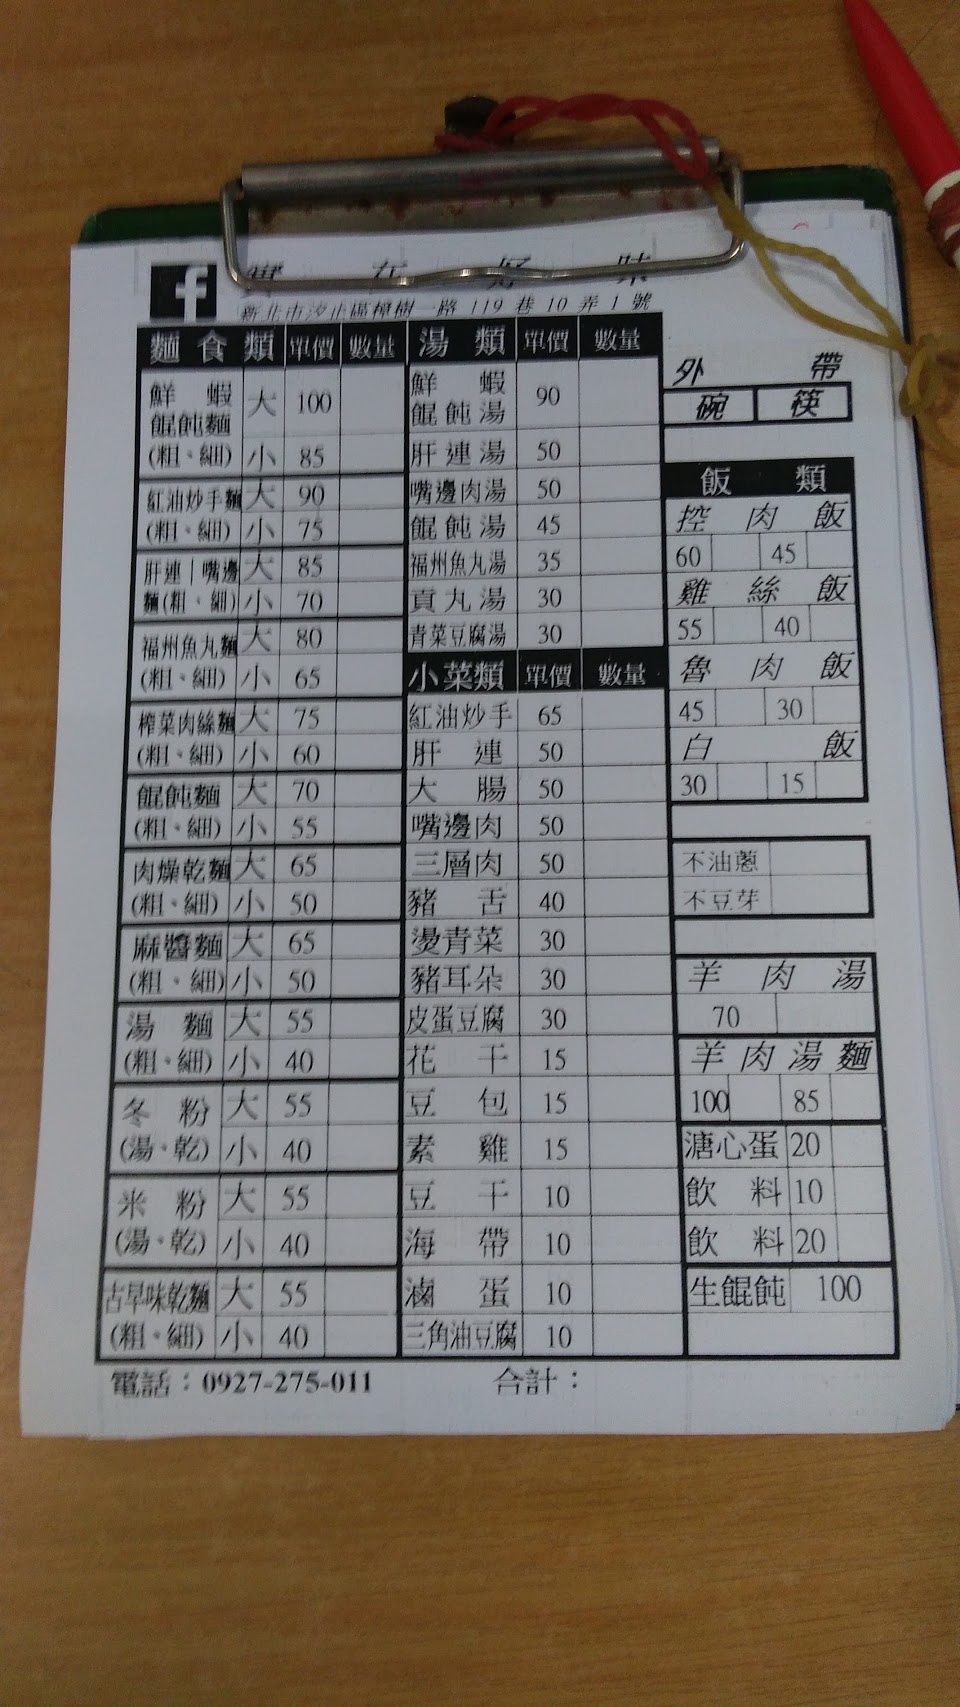 f 實在好味
新北市汐止區樟樹一路 119 巷 10 弄 1 號
麵食類 單價 數量
鮮蝦餛飩麵 大 100
(粗、細) 小 85
紅油炒手麵 大 90
(粗、細) 小 75
肝連｜嘴邊 大 85
麵(粗、細) 小 70
福州魚丸麵 大 80
(粗、細) 小 65
榨菜肉絲麵 大 75
(粗、細) 小 60
餛飩麵 大 70
(粗、細) 小 55
肉燥乾麵 大 65
(粗、細) 小 50
麻醬麵 大 65
(粗、細) 小 50
湯麵 大 55
(粗、細) 小 40
冬粉 大 55
(湯、乾) 小 40
米粉 大 55
(湯、乾) 小 40
古早味乾麵 大 55
(粗、細) 小 40
湯類 單價 數量
鮮蝦餛飩湯 90
肝連湯 50
嘴邊肉湯 50
餛飩湯 45
福州魚丸湯 35
貢丸湯 30
青菜豆腐湯 30
小菜類 單價 數量
紅油炒手 65
肝連 50
大腸 50
嘴邊肉 50
三層肉 50
豬舌 40
燙青菜 30
豬耳朵 30
皮蛋豆腐 30
花干 15
豆包 15
素雞 15
豆干 10
海帶 10
滷蛋 10
三角油豆腐 10
外帶
碗 筷
飯類
控肉飯
60 45
雞絲飯
55 40
魯肉飯
45 30
白飯
30 15
不油蔥
不豆芽
羊肉湯
70
羊肉湯麵
100 85
溏心蛋 20
飲料 10
飲料 20
生餛飩 100
電話：0927-275-011 合計：